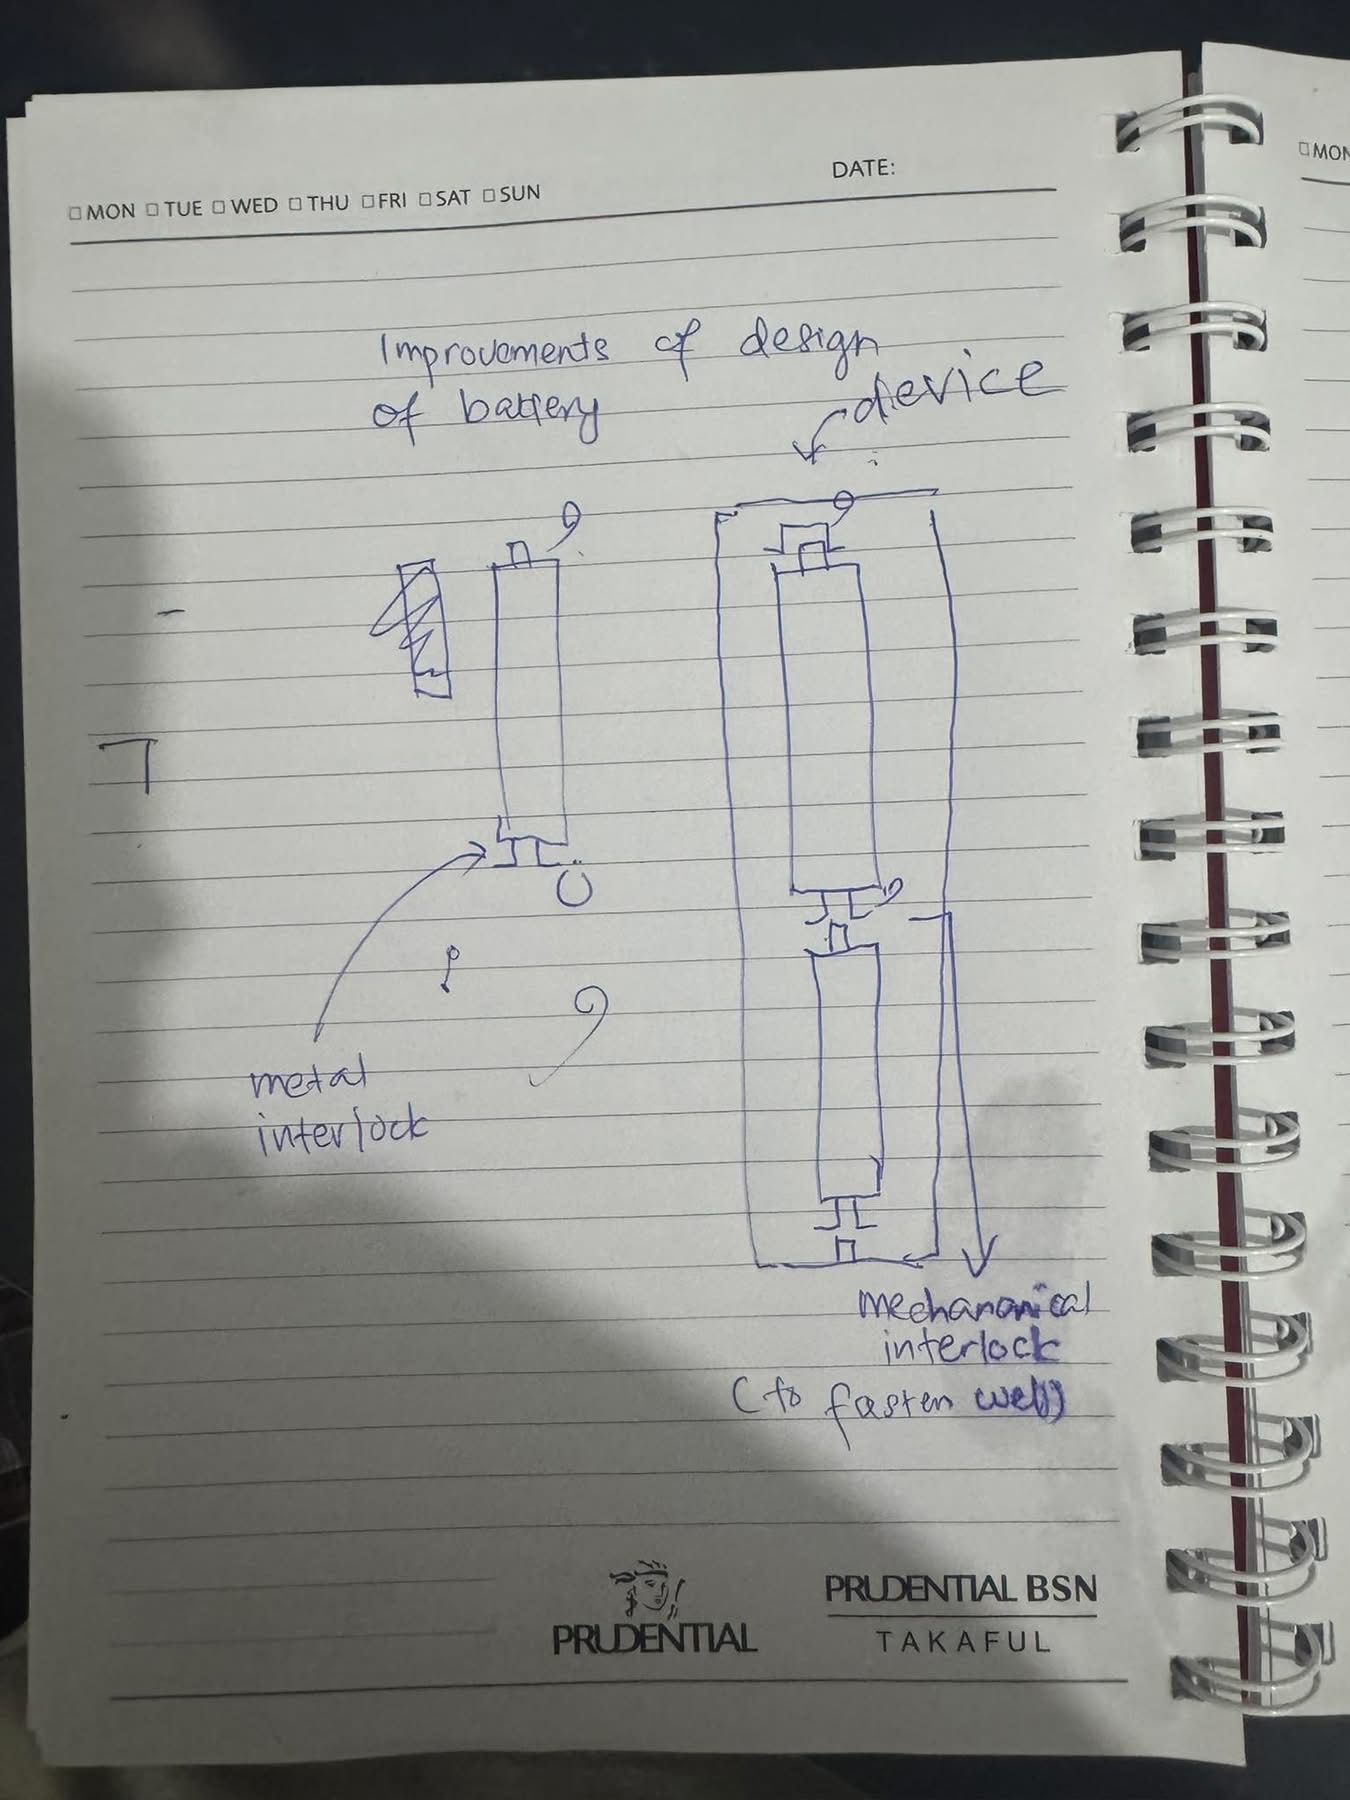 MON TUE WED THU FRI SAT SUN
DATE:
MON
Improvements of design
of battery
device
metal
interlock
mechananical
interlock
(to fasten well)
PRUDENTIAL
PRUDENTIAL BSN
TAKAFUL